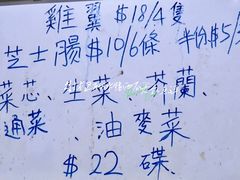 雞翼 $18/4隻
芝士腸$10/6條 半份$5/3
菜芯、生菜、芥蘭、
通菜、油麥菜
$22 碟